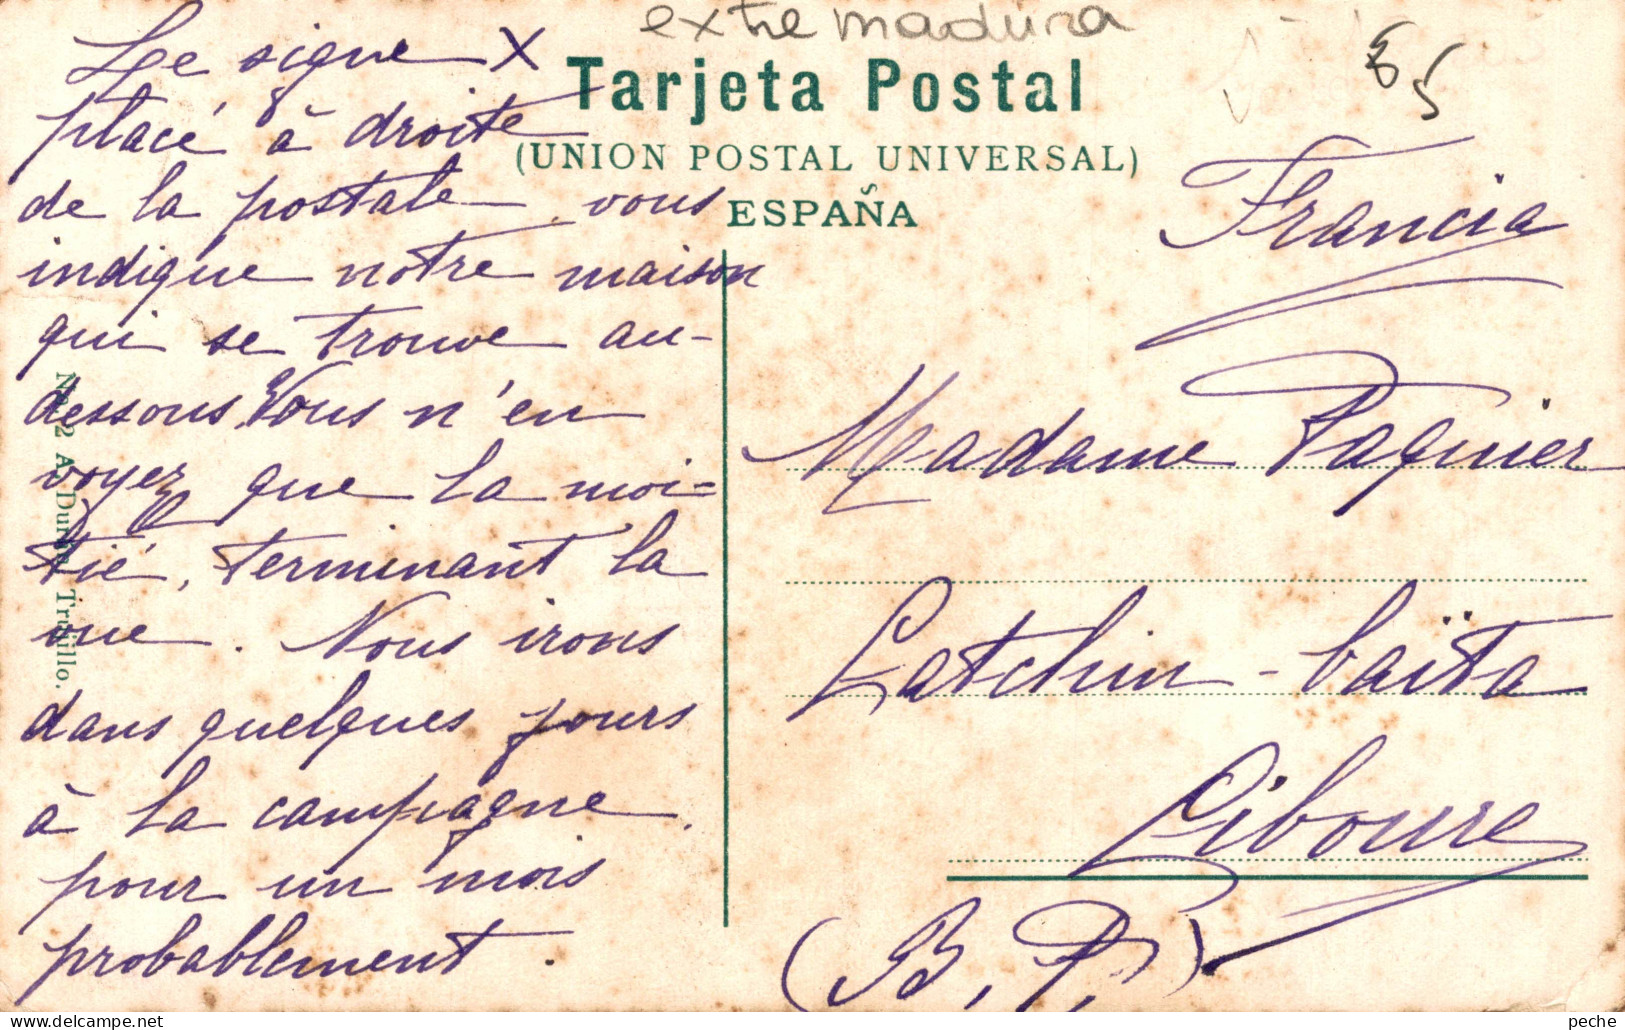 extremadura
85
Tarjeta Postal
(UNION POSTAL UNIVERSAL)
ESPAÑA
Le signe X
placé à droite
de la postale vous
indique notre maison
qui se trouve au-
dessous. Vous n'en
voyez que la moi=
tié, terminant la
rue. Nous irons
dans quelques jours
à la campagne,
pour un mois
probablement.
Francia
Madame Paquier
Latchin-baïta
Ciboure
(B. P.)
Trujillo.
peche